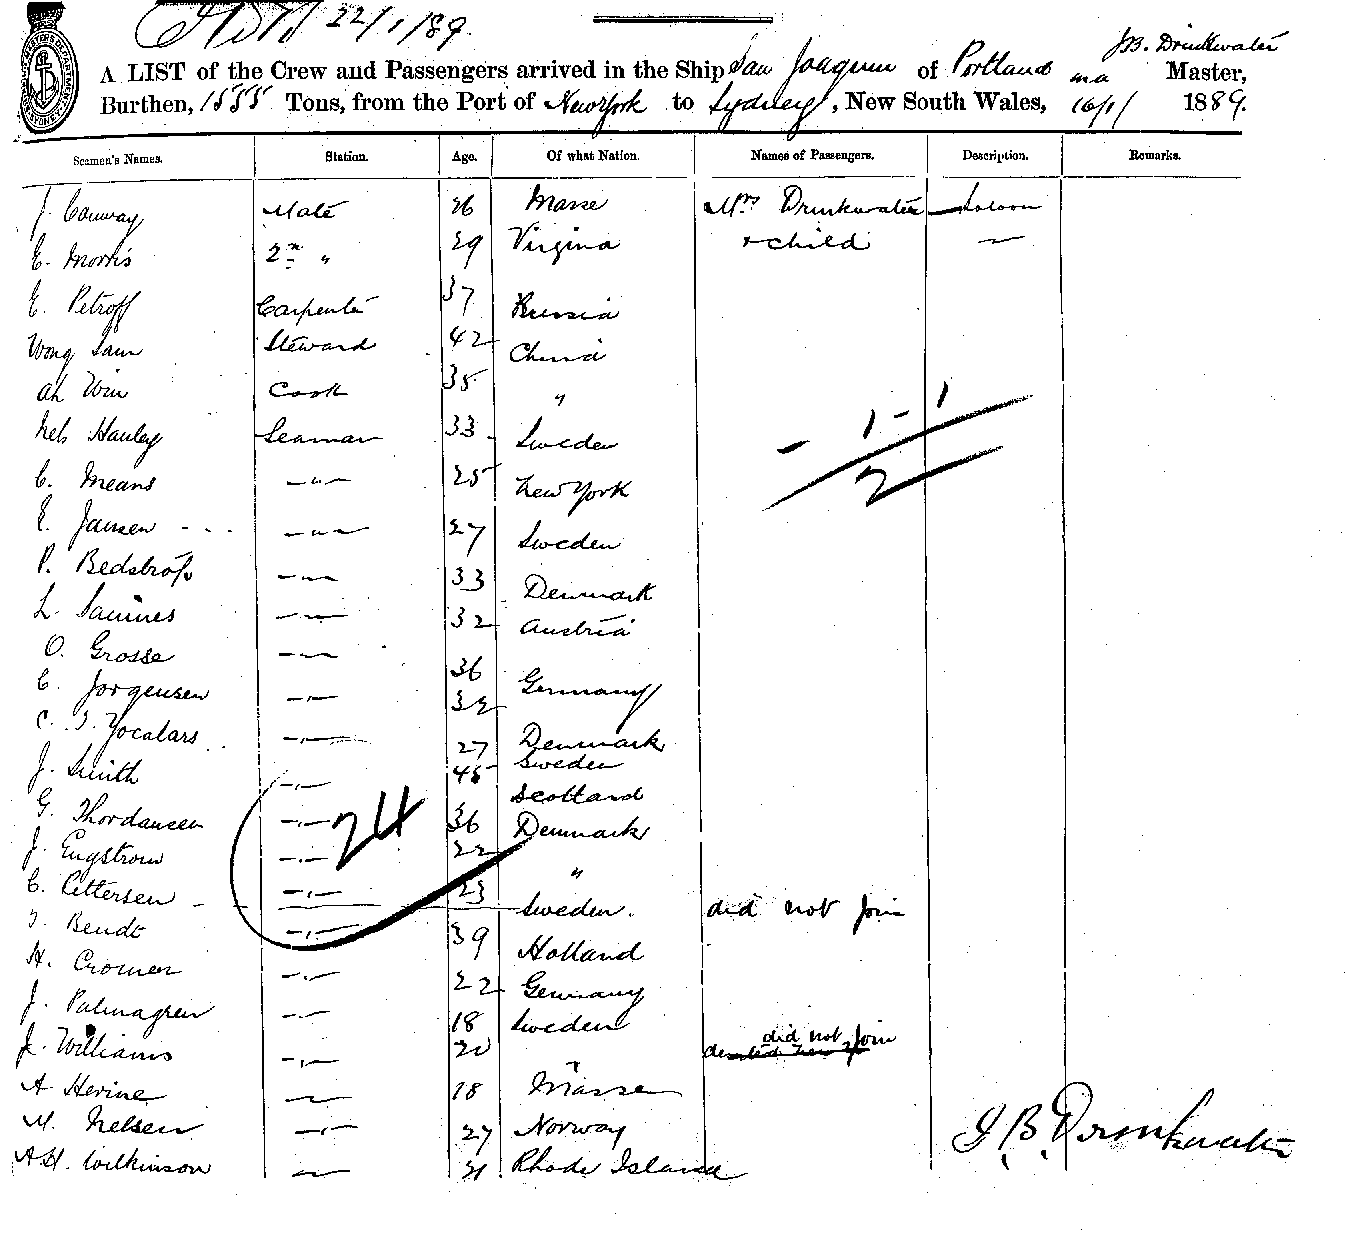 22/1/89.
J.B. Drinkwater
A LIST of the Crew and Passengers arrived in the Ship San Joaquin of Portland Master,
Burthen, 1555 Tons, from the Port of New York to Sydney, New South Wales, 16/1/ 1889.
Seamen's Names. Station. Age. Of what Nation. Names of Passengers. Description. Remarks.
J. Conway Mate 26 Masse Mrs Drinkwater Saloon
E. Morris 2nd " 29 Virginia + child —
E. Petroff Carpenter 37 Russia
Wong Sam Steward 42 China
Ah Win Cook 35 "
Nels Hanley Seaman 33 Sweden
C. Means —"— 25 New York
E. Jansen —"— 27 Sweden
P. Bedstrop —"— 33 Denmark
L. —"— 32 Austria
O. Grosse —"— 36 Germany
C. Jorgensen —"— 32 Denmark
C. J. Yocalars —"— 27 Sweden
J. Smith —"— 45 Scotland
G. Thordansen —"— 36 Denmark
J. Engstrom —"— 22 "
C. Pettersen —"— 23 Sweden. did not join
J. Bendt —"— 39 Holland
H. Cromer —"— 22 Germany
J. Palmagren —"— 18 Sweden
J. Williams —"— 20 Masse did not join
A Herine — 18
M. Nelsen —"— 27 Norway
A.H. Wilkinson — 21 Rhode Island
- 1 - 1
2
24
J. B. Drinkwater